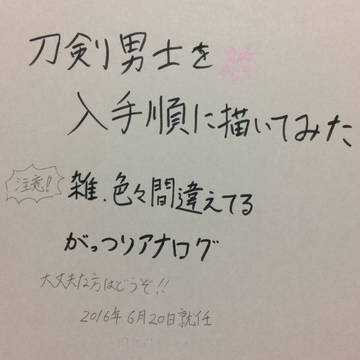 刀剣男士を
入手順に描いてみた
注意!!
雑.色々間違えてる
がっつりアナログ
大丈夫な方はどうぞ!!
2016年6月20日就任